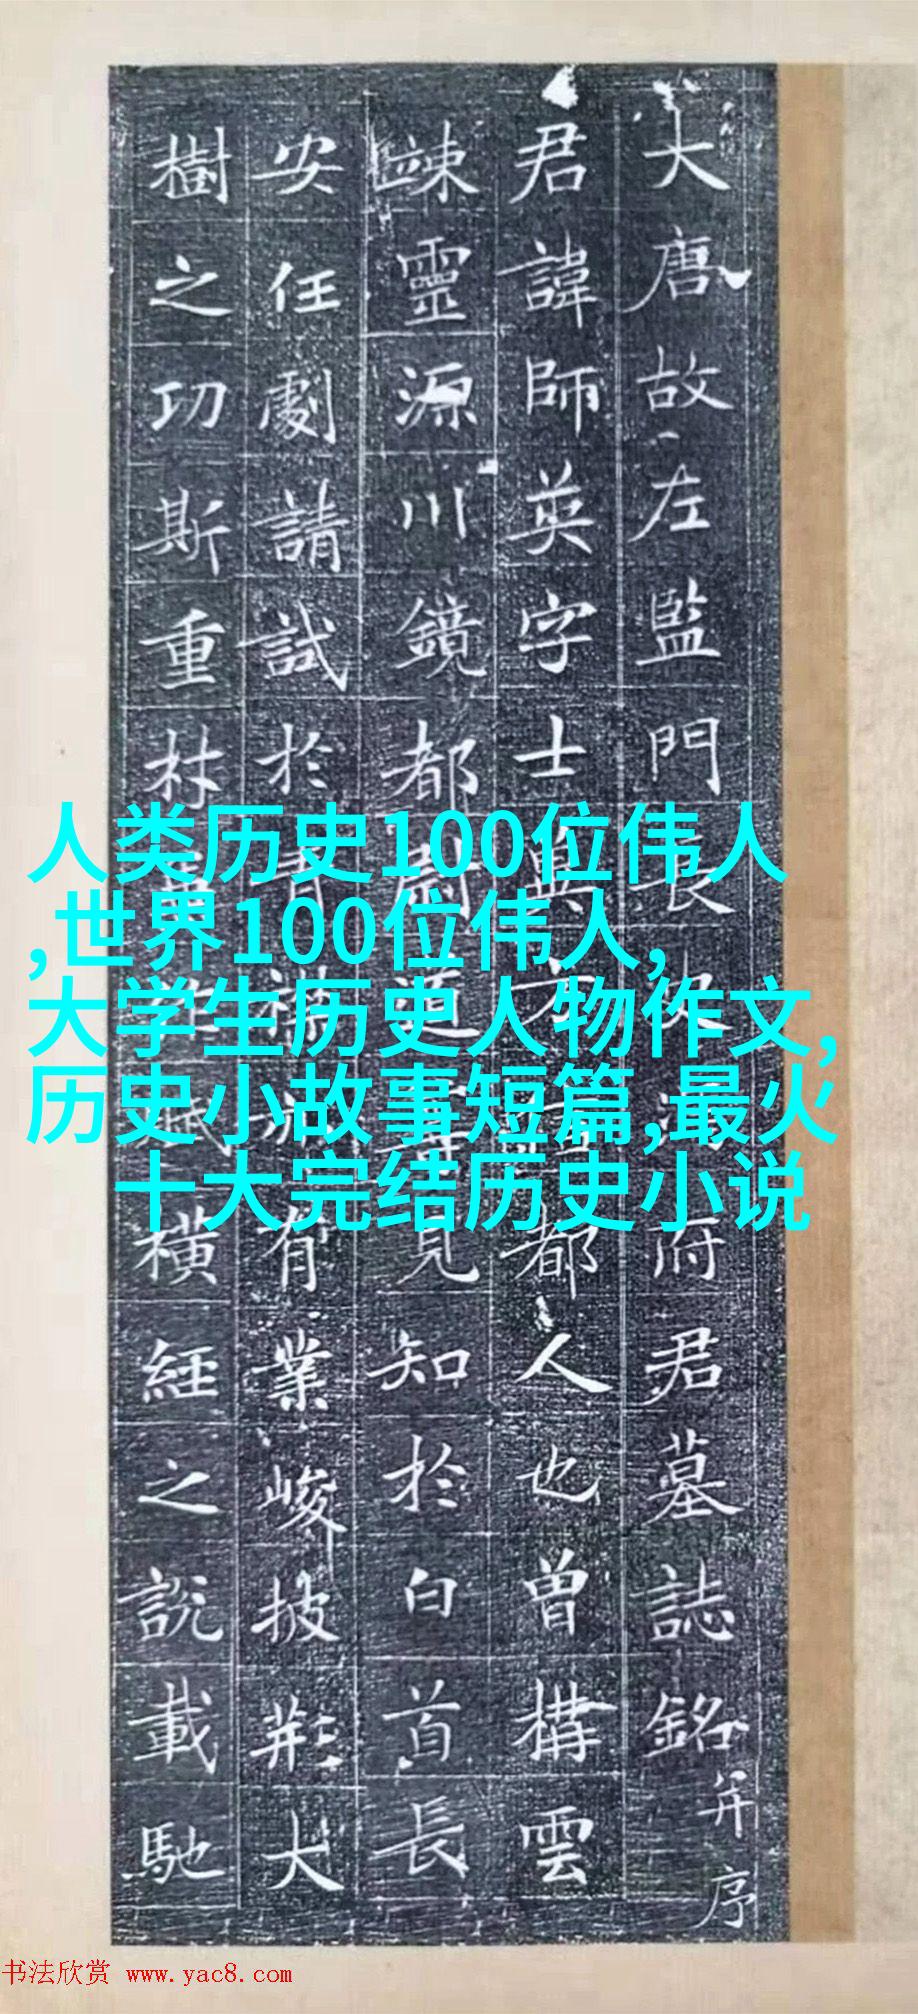 大唐故左監門長史 府君墓誌銘并序
君諱師英字士興 都人也曾構雲
竦靈源川鏡都尉道 見知於白首長
安任劇請試於青 有業峻披荆大
樹之功斯重林 橫經之說載馳
人类历史100位伟人
,世界100位伟人,
大学生历史人物作文,
历史小故事短篇,最火
十大完结历史小说
书法欣赏 www.yac8.com